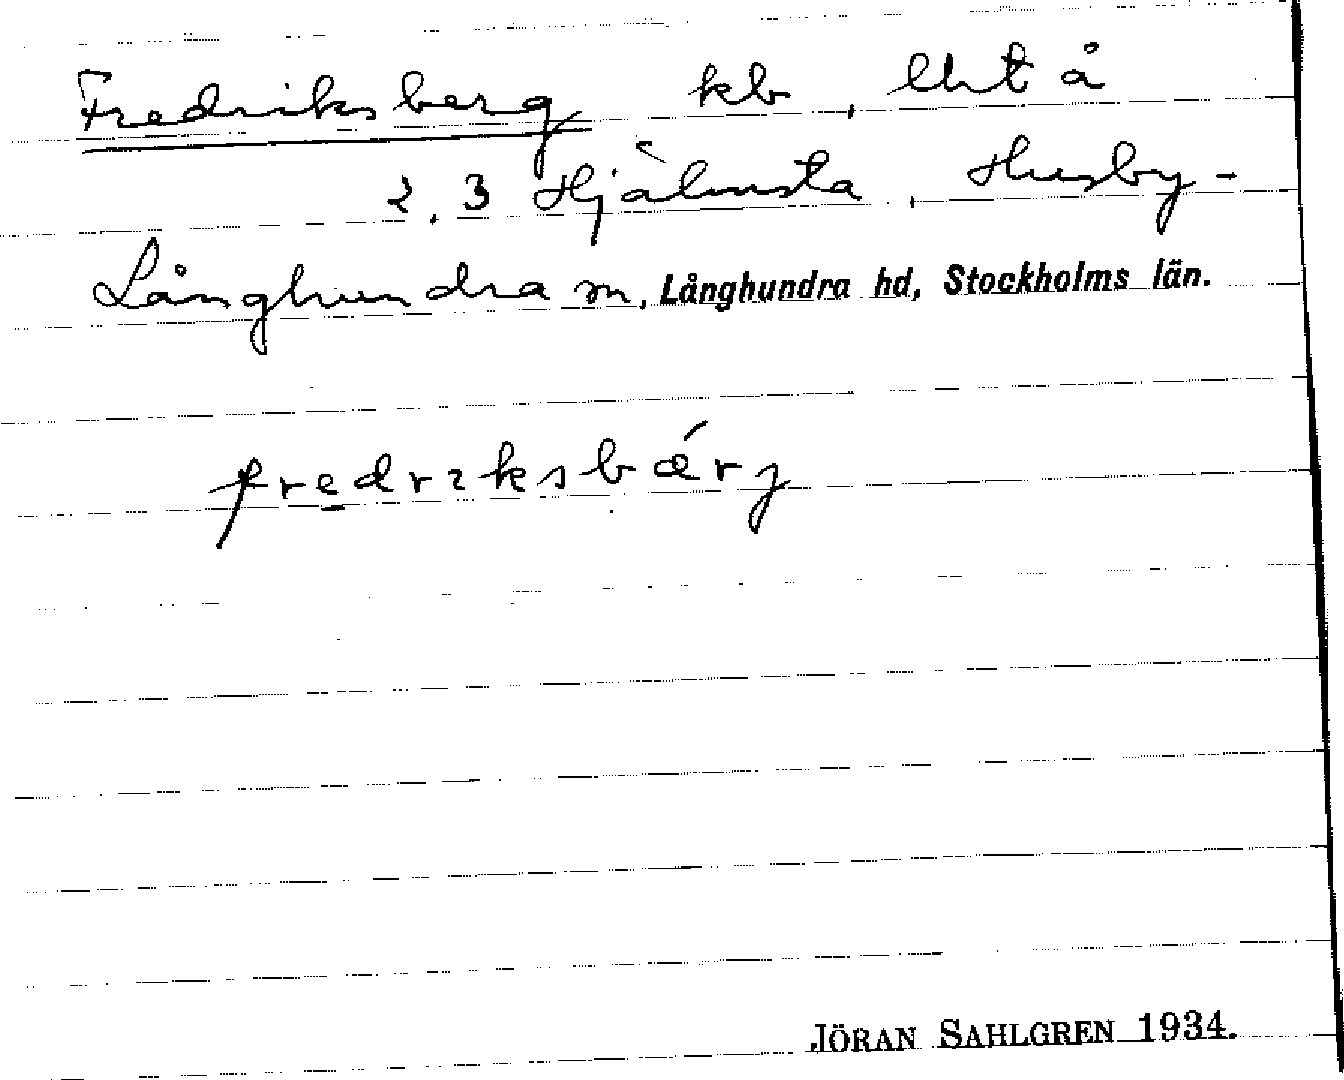 Fredriksberg kb, lht å
2, 3 Hjälmsta, Husby-
Långhundra sn, Långhundra hd, Stockholms län.
fredrıksbǽrj
JÖRAN SAHLGREN 1934.